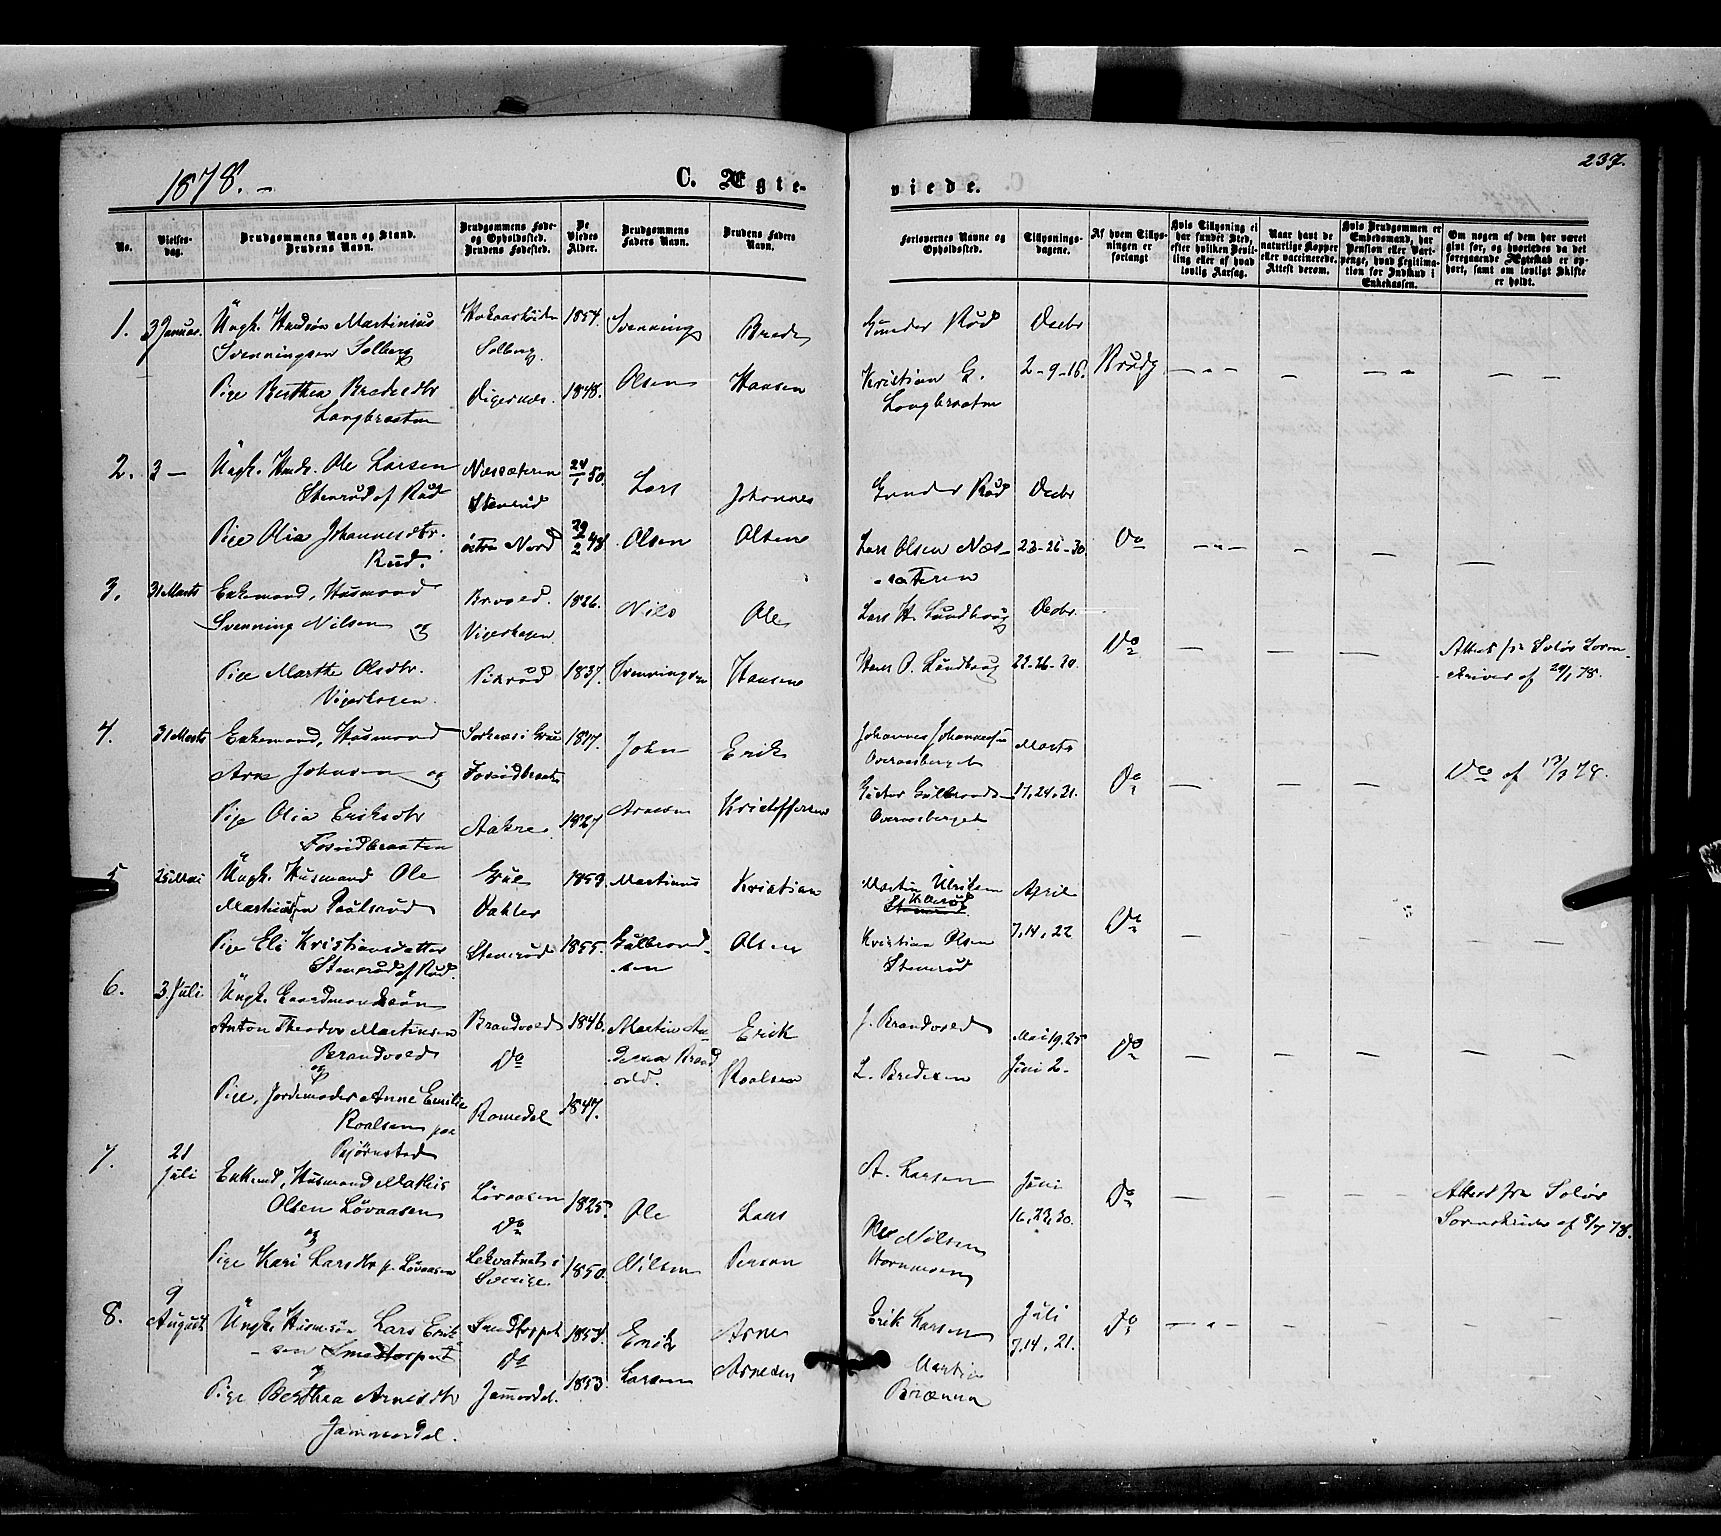 1878.
C. Ægte-
viede.
237.
No.
Vielses-
dag.
Brudgommens Navn og Stand.
Brudens Navn.
Brudgommens Føde-
og Opholdssted.
Brudens Fødested.
De
Viedes
Alder.
Brudgommens
Faders Navn.
Brudens Faders
Navn.
Forlovernes Navne og
Opholdssted.
Tillysnings-
dagene.
Af hvem Tillys-
ningen er
forlangt
Hvis Tillysning ei
har fundet Sted,
efter hvilken Bevil-
ling eller af hvad
lovlig Aarsag.
Naar havt de
naturlige Kopper
eller vaccinerede.
Attest derom.
Hvis Brudgommen er
Embedsmand, har
Pension eller Vart-
penge, hvad Legitima-
tion for Indskud i
Enkekassen.
Om nogen af dem har været
gift før, og hvorledes da det
foregaaende Ægteskab er op-
hørt, samt om lovligt Skifte
er holdt.
1. 3 Januar. Ungk. Hussøn Martinius 1854. Svenning Brede Gunder Rud Decbr
Svenningsen Solberg Solberg.
Pige Berthea Bredesdtr Digernæs. 1848. Olsen Hansen Kristian G. 2-9-16. Brudg
Langbraaten Langbraaten
2. 3 - Ungk. Husm. Ole Larsen Næssæteren 24/1 50. Lars Johannes Gunder Rud Decbr
Stenrud af Rud Stenrud
Pige Olia Johannesdtr. østre Nord 29/2 48. Olsen Olsen Lars Olsen Næs- 23-26-30 Do
Rud. sæteren
3. 31 Marts Enkemand, Husmand 1826. Nils Ole Lars H. Lundhaug Decbr.
Svenning Nilsen og Vigerhagen Do
Pige Marthe Olsdtr. 1837. Svenningsen Hansen Hans O. Lundhaug 23-26-30. Attest fra Solør Soren-
Vigerhagen. skriver af 29/1 78.
4. 31 Marts Enkemand, Husmand i Grue 1817. John Erik Johannes Johannessen Marts
Arne Johnsen og Overaasberget Do Do af 13/3 78.
Pige Olia Eriksdtr Aakre 1827 Arnesen Kristoffersen Gulbrands 17, 24, 31.
Overaasberget
5 25 Mai Ungk. Husmand Ole Grue 1853. Martinus Kristian Martin Ulriksen April
Martinusen Paulsrud
Pige Eli Kristiansdatter Stenrud 1855. Gulbrand- Olsen Kristian Olsen 7, 14, 22 Do
Stenrud af Rud. sen Stenrud
6. 3 Juli Ungk. Gaardmandssøn
Anton Theodor Martinsen Brandvold 1846. Martin An- Erik J. Brandvold Mai 19. 25
Brandvold Do dersen Brand Roalsen L. Bredesen Juni 2. Do
og vold.
Pige, Jordemoder Anne Emilie Romedal 1847.
Roalsen paa
Bjørnstad
7. 21 Juli Enkemd, Husmand Mathis Løvaasen 1825. Ole Lars A. Larsen Juni Do Attest fra Solør
Olsen Løvaasen Do 16, 23, 30. Sorenskriver af 8/7 78.
og
Pige Kari Larsdtr p. Løvaasen i Sverige. 1850. Nilsen Person Nilsen
8. 9 August Ungk. Husm. søn Lars Erik- 1854. Erik Arne Erik Larsen Juli Do
sen Smedtorpet Do 7, 14, 21.
og
Pige Berthea Arnesdtr Jammerdal. 1853. Larsen Arnesen Martin
Jammerdal. Brænna